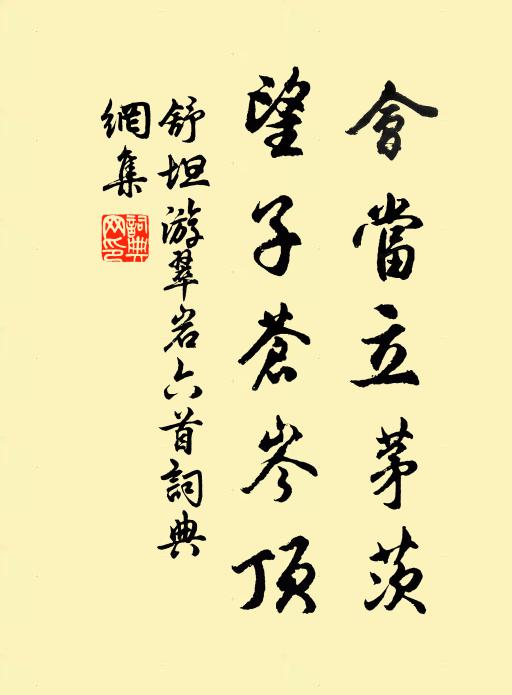 會當立茅茨
望子蒼岑頂
舒坦游翠岩六首詞典
網集
詞典網印